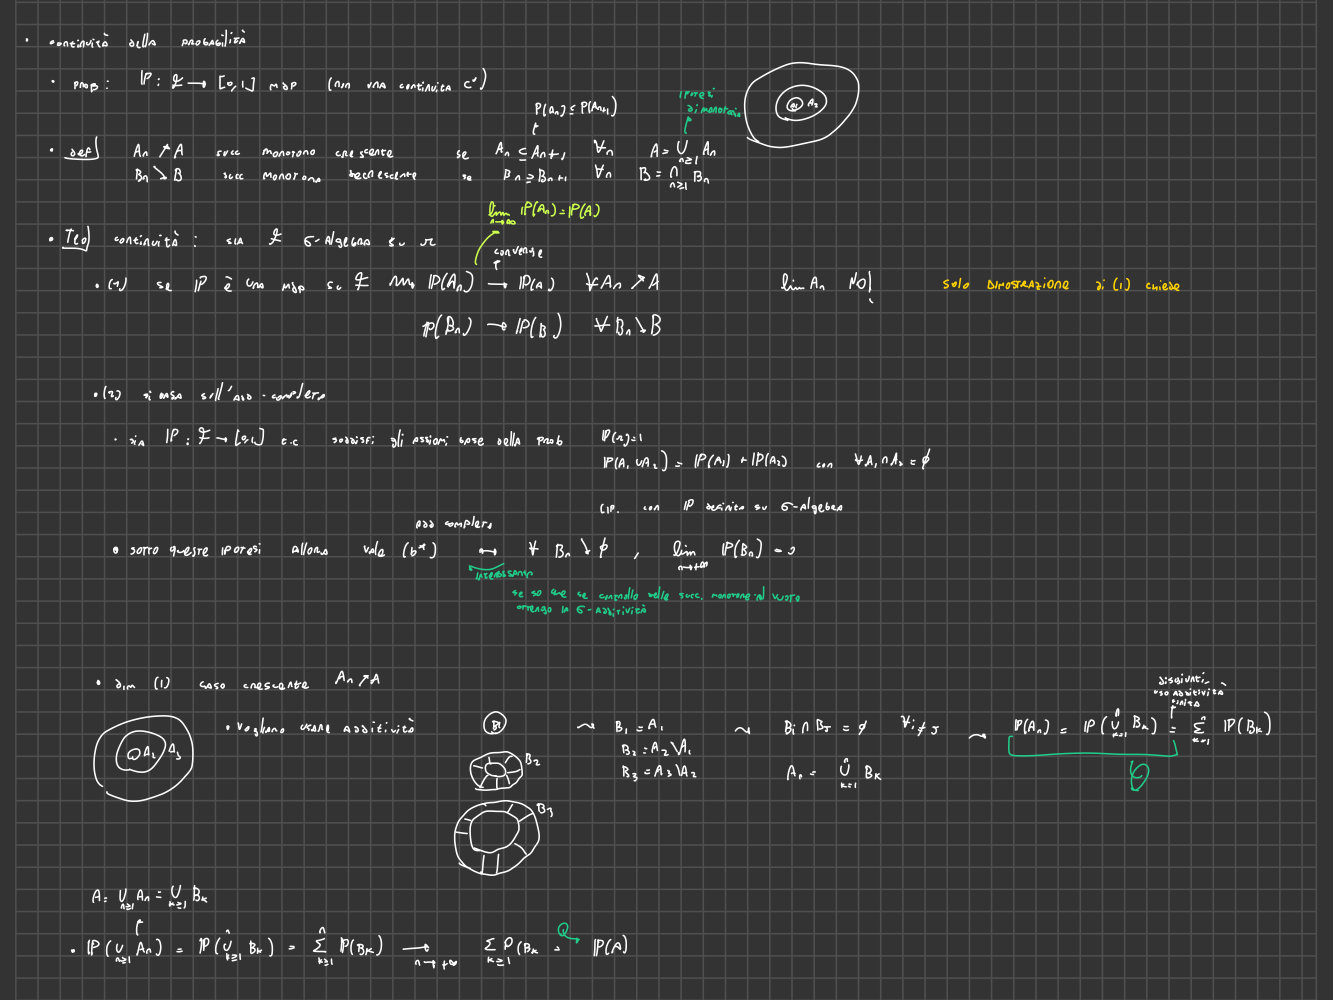 • continuità della probabilità
• prob: ℙ: ℱ → [0,1] mdp (non una continuità C⁰)
P(An) ≤ P(An+1)
ipotesi di monotonia
A2
• def) An ↗ A succ monotono crescente se An ⊆ An+1 ∀n A = ∪ n≥1 An
Bn ↘ B succ monotono decrescente se Bn ⊇ Bn+1 ∀n B = ∩ n≥1 Bn
lim n→∞ ℙ(An) = ℙ(A)
• Teo) continuità: sia ℱ σ-Algebra su Ω
converge
• (1) se ℙ è una mdp su ℱ ⇝ ℙ(An) → ℙ(A) ∀An ↗ A lim An NO! solo dimostrazione di (1) chiede
ℙ(Bn) → ℙ(B) ∀Bn ↘ B
• (2) si basa sull'add-completa
• sia ℙ: ℱ → [0,1] t.c soddisfi gli assiomi base della prob ℙ(Ω)=1
ℙ(A1 ∪ A2) = ℙ(A1) + ℙ(A2) con ∀A1 ∩ A2 = ∅
con ℙ definita su σ-Algebra
add completa
• sotto queste ipotesi allora vale (b*) ↔ ∀ Bn ↘ ∅, lim n→+∞ ℙ(Bn) → 0
interessante
se so che se controllo delle succ. monotone al vuoto
ottengo la σ-additività
• dim (1) caso crescente An ↗ A
disgiunti, uso additività finita
A2 A3
• vogliamo usare additività B1 ⇝ B1 = A1 ⇝ Bi ∩ BJ = ∅ ∀i≠J ⇝ ℙ(An) = ℙ(∪ k=1 n Bk) = Σ k=1 n ℙ(Bk)
B2 B2 = A2 \ A1
B3 = A3 \ A2 An = ∪ k=1 n Bk
B3
A = ∪ n≥1 An = ∪ k≥1 Bk
• ℙ(∪ n≥1 An) = ℙ(∪ k≥1 n Bk) = Σ k≥1 n ℙ(Bk) → n→+∞ Σ k≥1 P(Bk = ℙ(A)